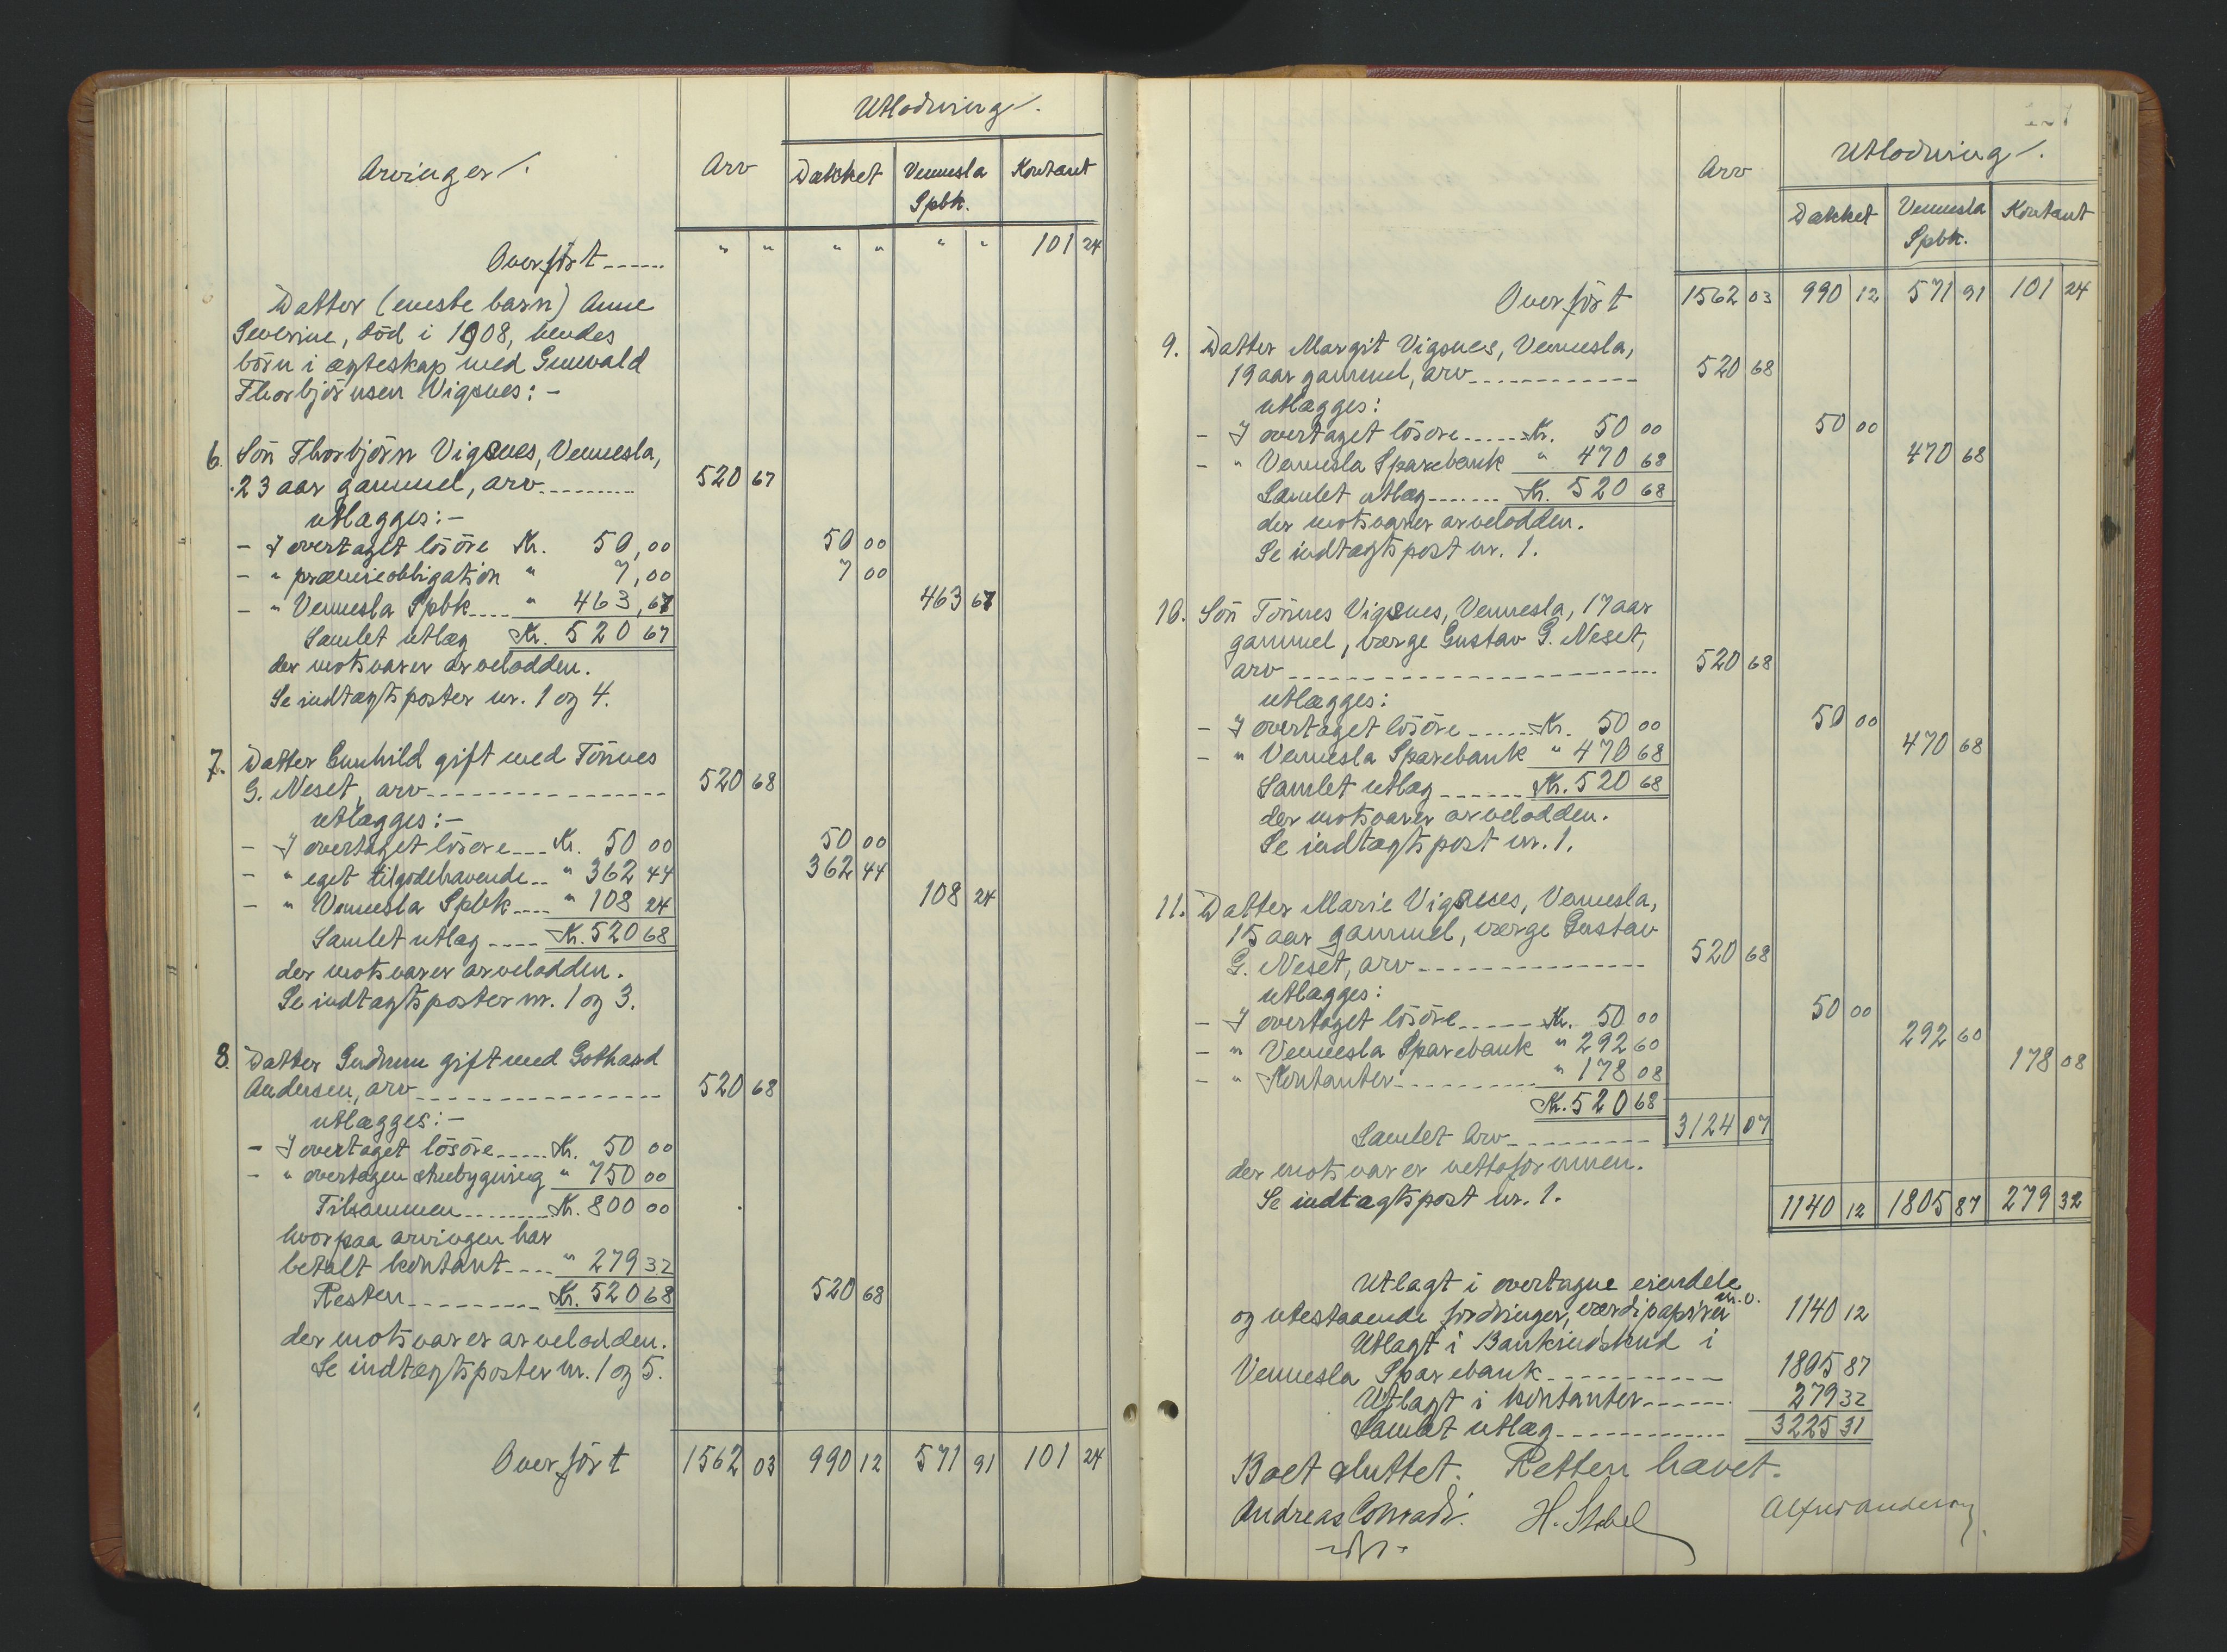 Utlodning /.
Arvinger /. Arv Dækket Vennesla Spbk. Kontant
Overført ------ " " " " " " 101 24
Datter (eneste barn) Anne
Severine, död i 1908, hendes
börn i ægteskap med Gunvald
Thorbjörnsen Vigsnes: -
6. Sön Thorbjörn Vigsnes, Vennesla,
23 aar gammel, arv --------- 520 67
utlægges: -
- I overtaget lösöre Kr. 50,00 50 00
- " præmieobligation " 7,00 7 00
- " Vennesla Spbk ---- " 463,67 463 67
Samlet utlæg Kr. 520 67
der motsvarer arvelodden.
Se indtægtsposter nr. 1 og 4.
7. Datter Gunhild gift med Tönnes
G. Neset, arv ---------------- 520 68
utlægges: -
- I overtaget lösöre --- Kr. 50 00 50 00
- " eget tilgodehavende -- " 362 44 362 44
- " Vennesla Spbk ---- " 108 24 108 24
Samlet utlæg ---- Kr. 520 68
der motsvarer arvelodden.
Se indtægtsposter nr. 1 og 3.
8. Datter Gudrun gift med Gothard
Andersen, arv ---------------- 520 68
utlægges: -
- I overtaget lösöre ----- Kr. 50 00
- " overtagen stuebygning " 750 00
Tilsammen -------- Kr. 800 00
hvorpaa arvingen har
betalt kontant ---- " 279 32
Resten --------- Kr. 520 68 520 68
der motsvarer arvelodden.
Se indtægtsposter nr. 1 og 5.
Overført 1562 03 990 12 571 91 101 24
Utlodning /.
Arv Dækket Vennesla Spbk. Kontant
Overført 1562 03 990 12 571 91 101 24
9. Datter Margit Vigsnes, Vennesla,
19 aar gammel, arv ------------ 520 68
utlægges:
- I overtaget lösöre ----- Kr. 50 00 50 00
- " Vennesla Sparebank " 470 68 470 68
Samlet utlæg ------- Kr. 520 68
der motsvarer arvelodden.
Se indtægtspost nr. 1.
10. Sön Tönnes Vigsnes, Vennesla, 17 aar
gammel, værge Gustav G. Neset,
arv ------------------------- 520 68
utlægges:
- I overtaget lösöre ------ Kr. 50 00 50 00
- " Vennesla Sparebank " 470 68 470 68
Samlet utlæg ------ Kr. 520 68
der motsvarer arvelodden.
Se indtægtspost nr. 1.
11. Datter Marie Vigsnes, Vennesla,
15 aar gammel, værge Gustav
G. Neset, arv ---------------- 520 68
utlægges:
- I overtaget lösöre ------ Kr. 50 00 50 00
- " Vennesla Sparebank " 292 60 292 60
- " Kontanter ---------- " 178 08 178 08
Kr. 520 68
Samlet Arv ---------- 3124 07
der motsvarer nettoformuen.
Se indtægtspost nr. 1. 1140 12 1805 87 279 32
Utlagt i overtagne eiendele
og utestaaende fordringer, værdipapirer m.v. 1140 12
Utlagt i Bankindskud i
Vennesla Sparebank ------------ 1805 87
Utlagt i kontanter ------- 279 32
Samlet utlæg ------------- 3225 31
Boet sluttet. Retten hævet.
Andreas Conradi. H. Stobel Alfred Anderson